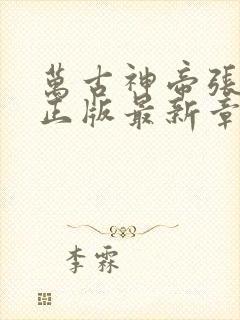 萬古神帝張
正版最新章
李霖